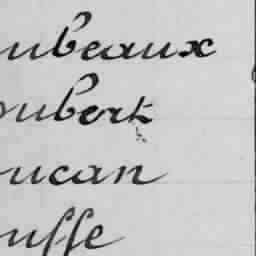 oubeaux
oubert
oucan
ouffe